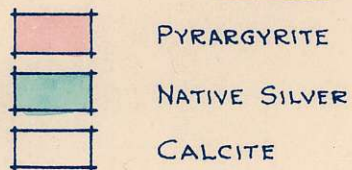 PYRARGYRITE
NATIVE SILVER
CALCITE